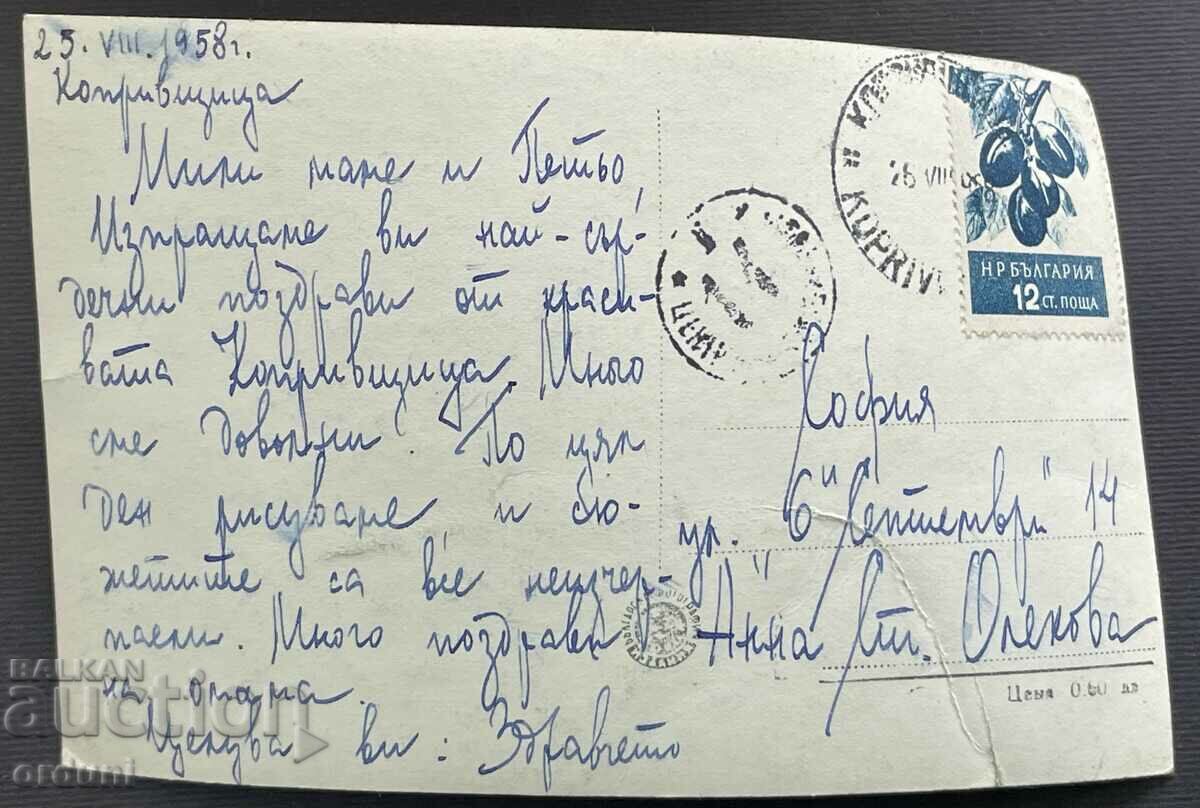 25. VIII. 1958 г.
Копривщица
Мили маме и Петьо,
Изпращаме ви най-сър-
дечни поздрави от краси-
вата Копривщица. Много
сме доволни. По цял
ден рисуваме и сю-
жетите са все неизчер-
паеми. Много поздрави
на
Целува ви: Здравчето
KOPRIV
НР БЪЛГАРИЯ
12 СТ. ПОЩА
София
ул. "6 Септември" 14
Анна Ст.
Цена 0.60 лв
BALKAN
auction
orduni